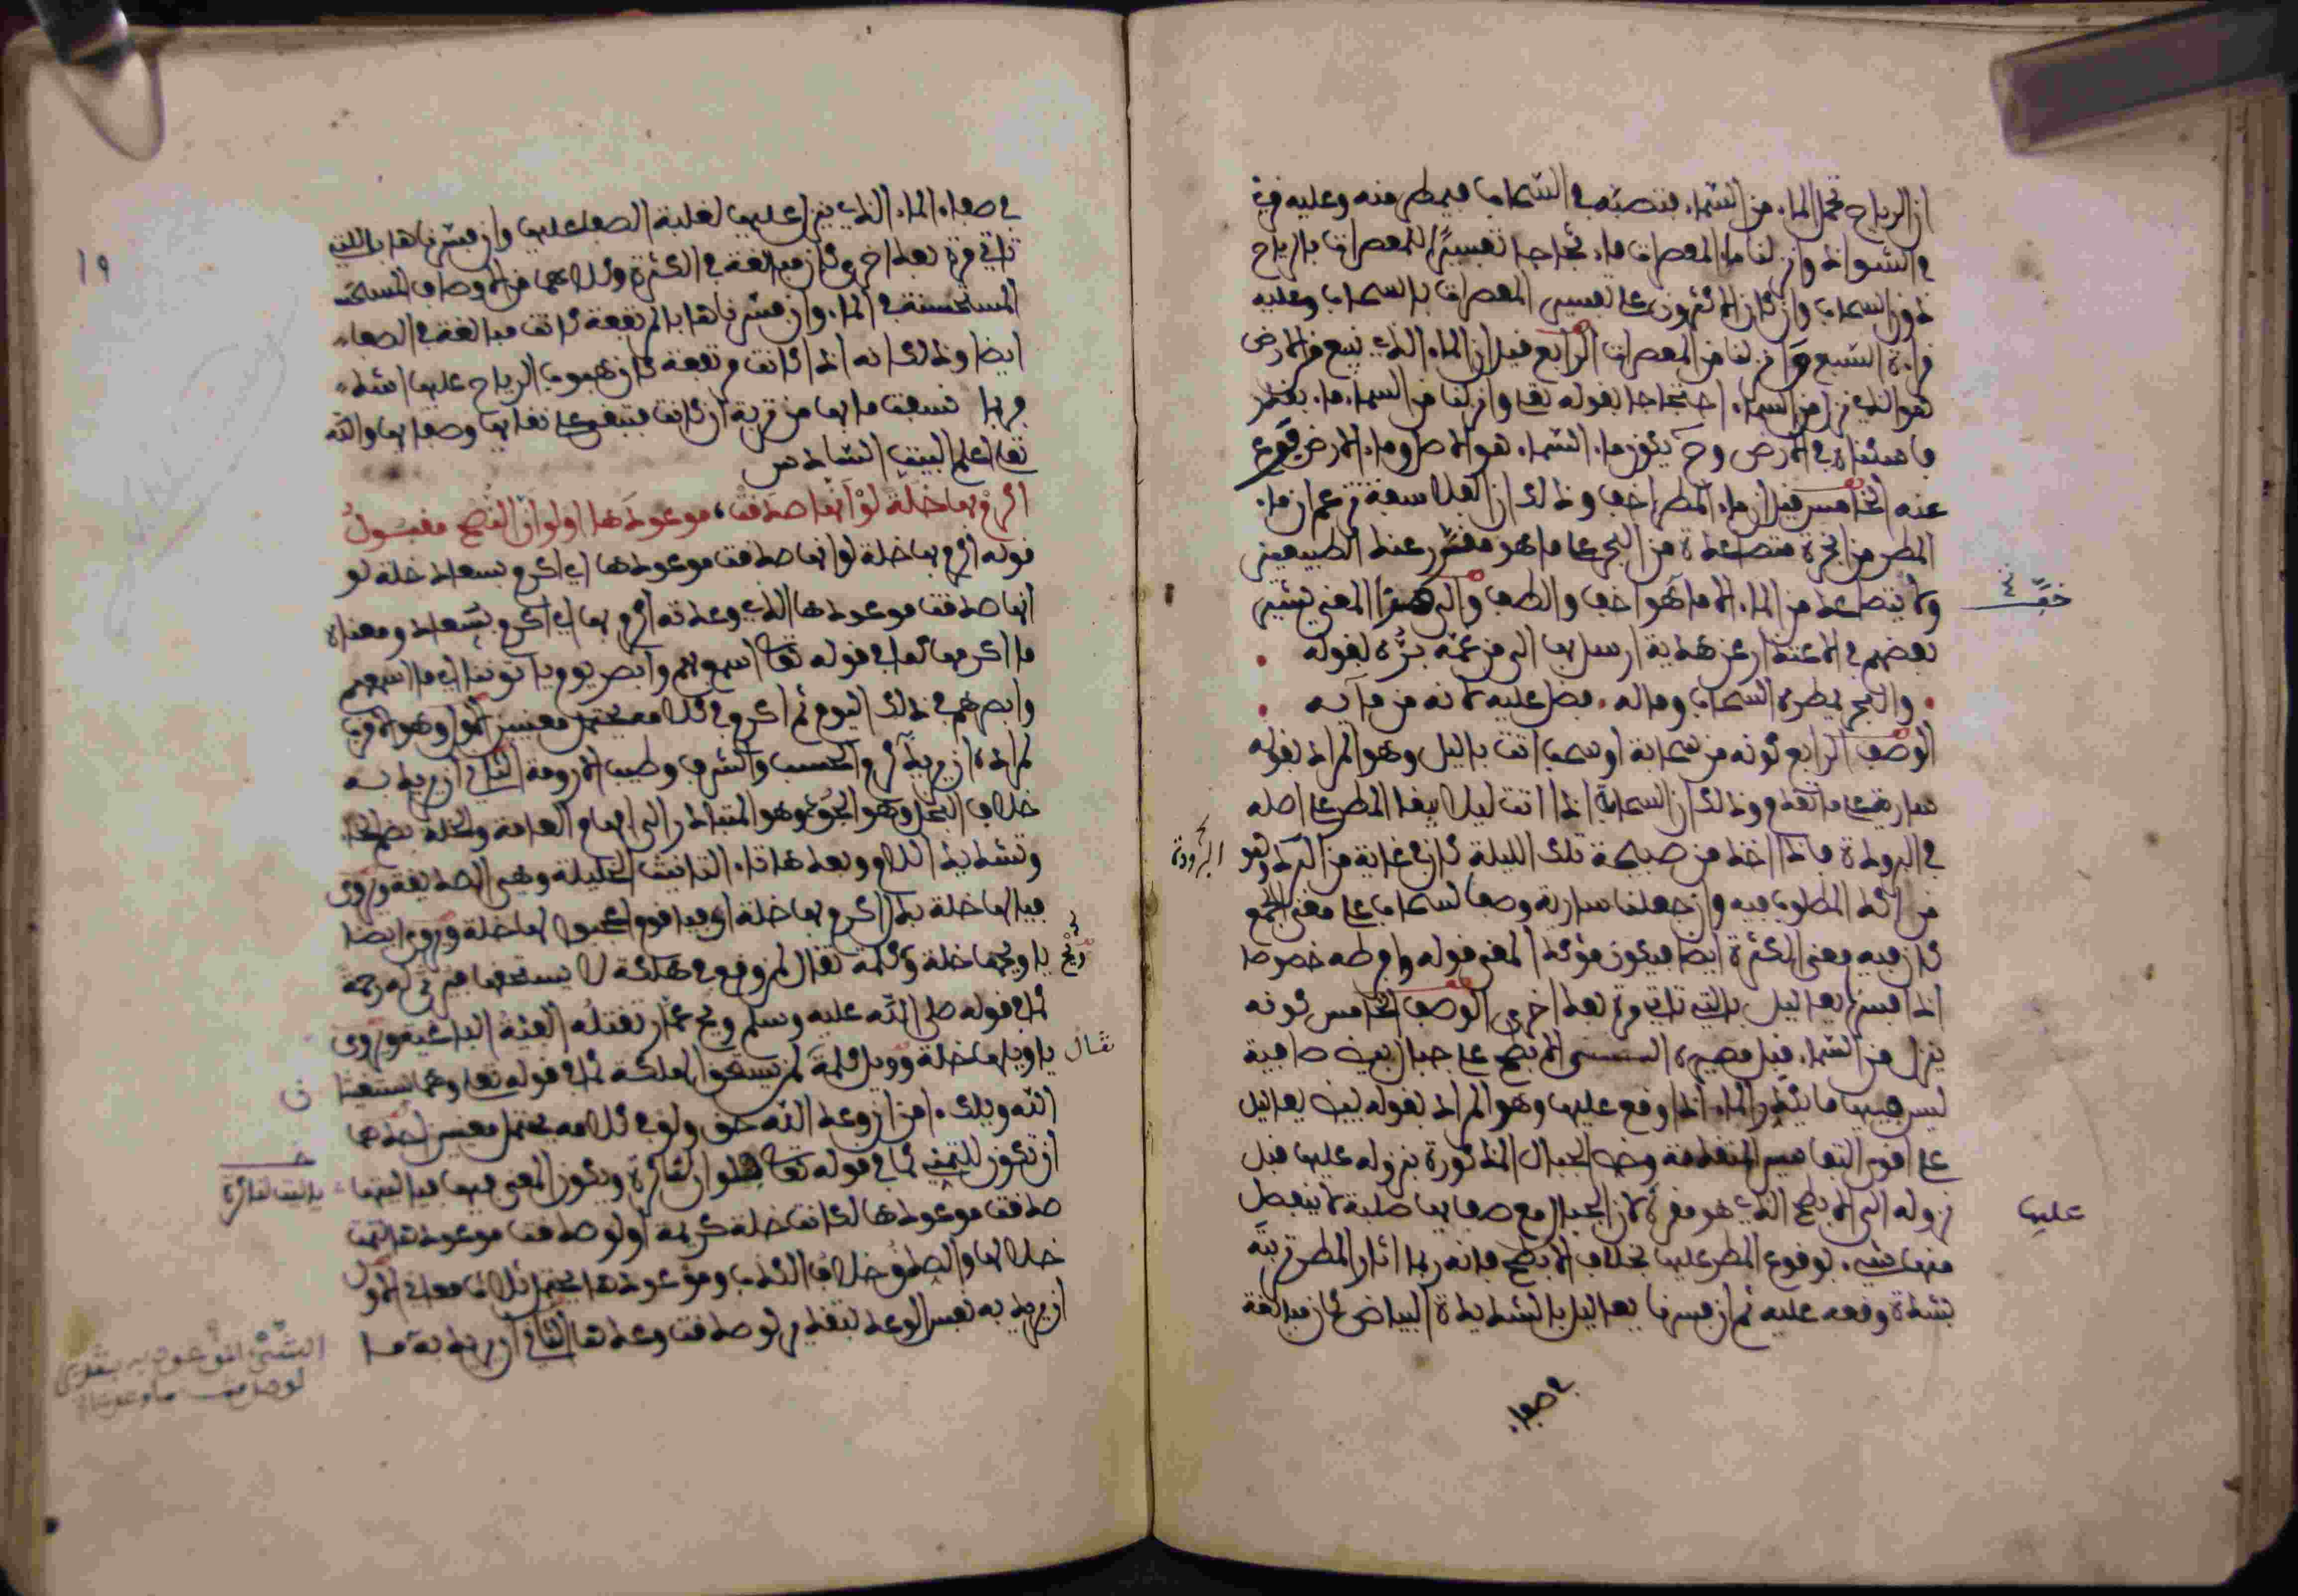 ان الرياح تحمل الماء من السماء فتصبه في السحاب فيمطر منه وعليه قرئ
في الشواذ وانزلنا بالمعصرات ماء ثجاجا تفسيرا للمعصرات بالرياح
دون السحاب وان كان الاكثرون على تفسير المعصرات بالسحاب وعليه
قراءة السبع وانزلنا من المعصرات الرابع قيل ان الماء الذي ينبع من الارض
هو الذي نزل من السماء احتجاجا بقوله تعلى وانزلنا من السماء ماء بقدر
فاسكناه في الارض وح يكون ماء السماء هو الاصل وماء الارض فرع
عنه الخامس قيل ان ماء المطر اخف وذلك ان الفلاسفة تزعم ان ماء
المطر من ابخرة متصاعدة من البحر على ما هو مقرر عند الطبيعيين
ولا يتصاعد من الماء الا ما هو اخف والطف والى هذا المعنى يشير
بعضهم في الاعتذار عن هدية ارسلها الى من عمه بره بقوله
والبحر يمطره السحاب وما له • فضل عليه لانه من مائه
الوصف الرابع كونه من سحابة او سحاب اتت بالليل وهو المراد بقوله
سارية على ما تقدم وذلك ان السحابة اذا اتت ليلا يبقى المطر على اصله
في البرودة فاذا اخذ من صبيحة تلك الليلة كان في غاية من البرد وهو
من اكد المطلوب فيه وان جعلنا سارية وصفا لسحاب على معنى الجمع
كان فيه معنى الكثرة ايضا فيكون مؤكدا لمعنى قوله وافرطه خصوصا
اذا فسر يعاليل بالتي تاتي مرة بعد اخرى الوصف الخامس كونه
ينزل من السماء قبل مصيره الى الابطح على جبال بيض صافية
ليس فيها ما يكدر الماء اذا وقع عليها وهو المراد بقوله بيض يعاليل
على اقوى التفاسير المتقدمة وخص الجبال المذكورة بنزوله عليها قبل
نزوله الى الابطح الذي هو مقره لان الجبال مع صفائها صلبة لا ينفصل
منها شيء بوقوع المطر عليها بخلاف الابطح فانه ربما اثار المطر تربته
بشدة وقعه عليه ثم ان فسرنا يعاليل بالشديدة البياض كان مبالغة
خف
البرودة
عليها
في صفاء
في صفاء الماء الذي ينزل عليها لغلبة الصفا عليها وان فسرناها بالتي
تاتي مرة بعد اخرى كان مبالغة في الكثرة وكلاهما من الاوصاف
المستحسنة في الماء وان فسرناها بالمرتفعة كانت مبالغة في الصفاء
ايضا وذلك انه اذا كانت مرتفعة كان هبوب الرياح عليها اشد
فربما نسفت ما بها من تربة ان كانت فتبقى على نقائها وصفائها والله
تعلى اعلم البيت السادس
اكرم بها خلة لو انها صدقت، موعودها او لو ان النصح مقبول
قوله اكرم بها خلة لو انها صدقت موعودها اي اكرم بسعاد خلة لو
انها صدقت موعودها الذي وعدته اكرم بها اي اكرم بسعاد ومعناه
ما اكرمها كما في قوله تعالى اسمع بهم وابصر يوم ياتوننا اي ما اسمعهم
وابصرهم في ذلك اليوم ثم اكرم في كلامه يحتمل معنيين الاول وهو الاقرب
لمراده ان يريد كرم الحسب والشرف وطيب الارومة الثاني ان يريد به
خلاف البخل وهو الجود وهو المتبادر الى افهام العامة والخلة بضم الخاء
وتشديد اللام وبعدها تاء التانيث الخليلة وهي الصديقة ويروى
فيا لها خلة بدل اكرم بها خلة اي فيا قوم اعجبوا لها خلة ويروى ايضا
يا ويحها خلة وكلمة تقال لمن وقع في هلكة لا يستحقها فيرثى له رحمة
كما في قوله صلى الله عليه وسلم ويح عمار تقتله الفئة الباغية ويروى
يا ويلها خلة وويل كلمة لمن يستحق الهلكة كما في قوله تعلى وهما يستغيثان
الله ويلك ءامن ان وعد الله حق ولو في كلامه يحتمل معنيين احدهما
ان تكون للتمني كما في قوله تعالى فلو ان لنا كرة ويكون المعنى فيها فيا ليتها
صدقت موعودها لكانت خلة كريمة او لو صدقت موعودها لتمت
خلالها والصدق خلاف الكذب وموعودها يحتمل ثلاثة معان الاول
ان يريد به نفس الوعد بتقدير لو صدقت وعدها الثاني ان يريد به ما
١٩
ويح
تقال
ن
يا ليت لنا كرة
الشئ الموعود به بتقدير
لو صدقت